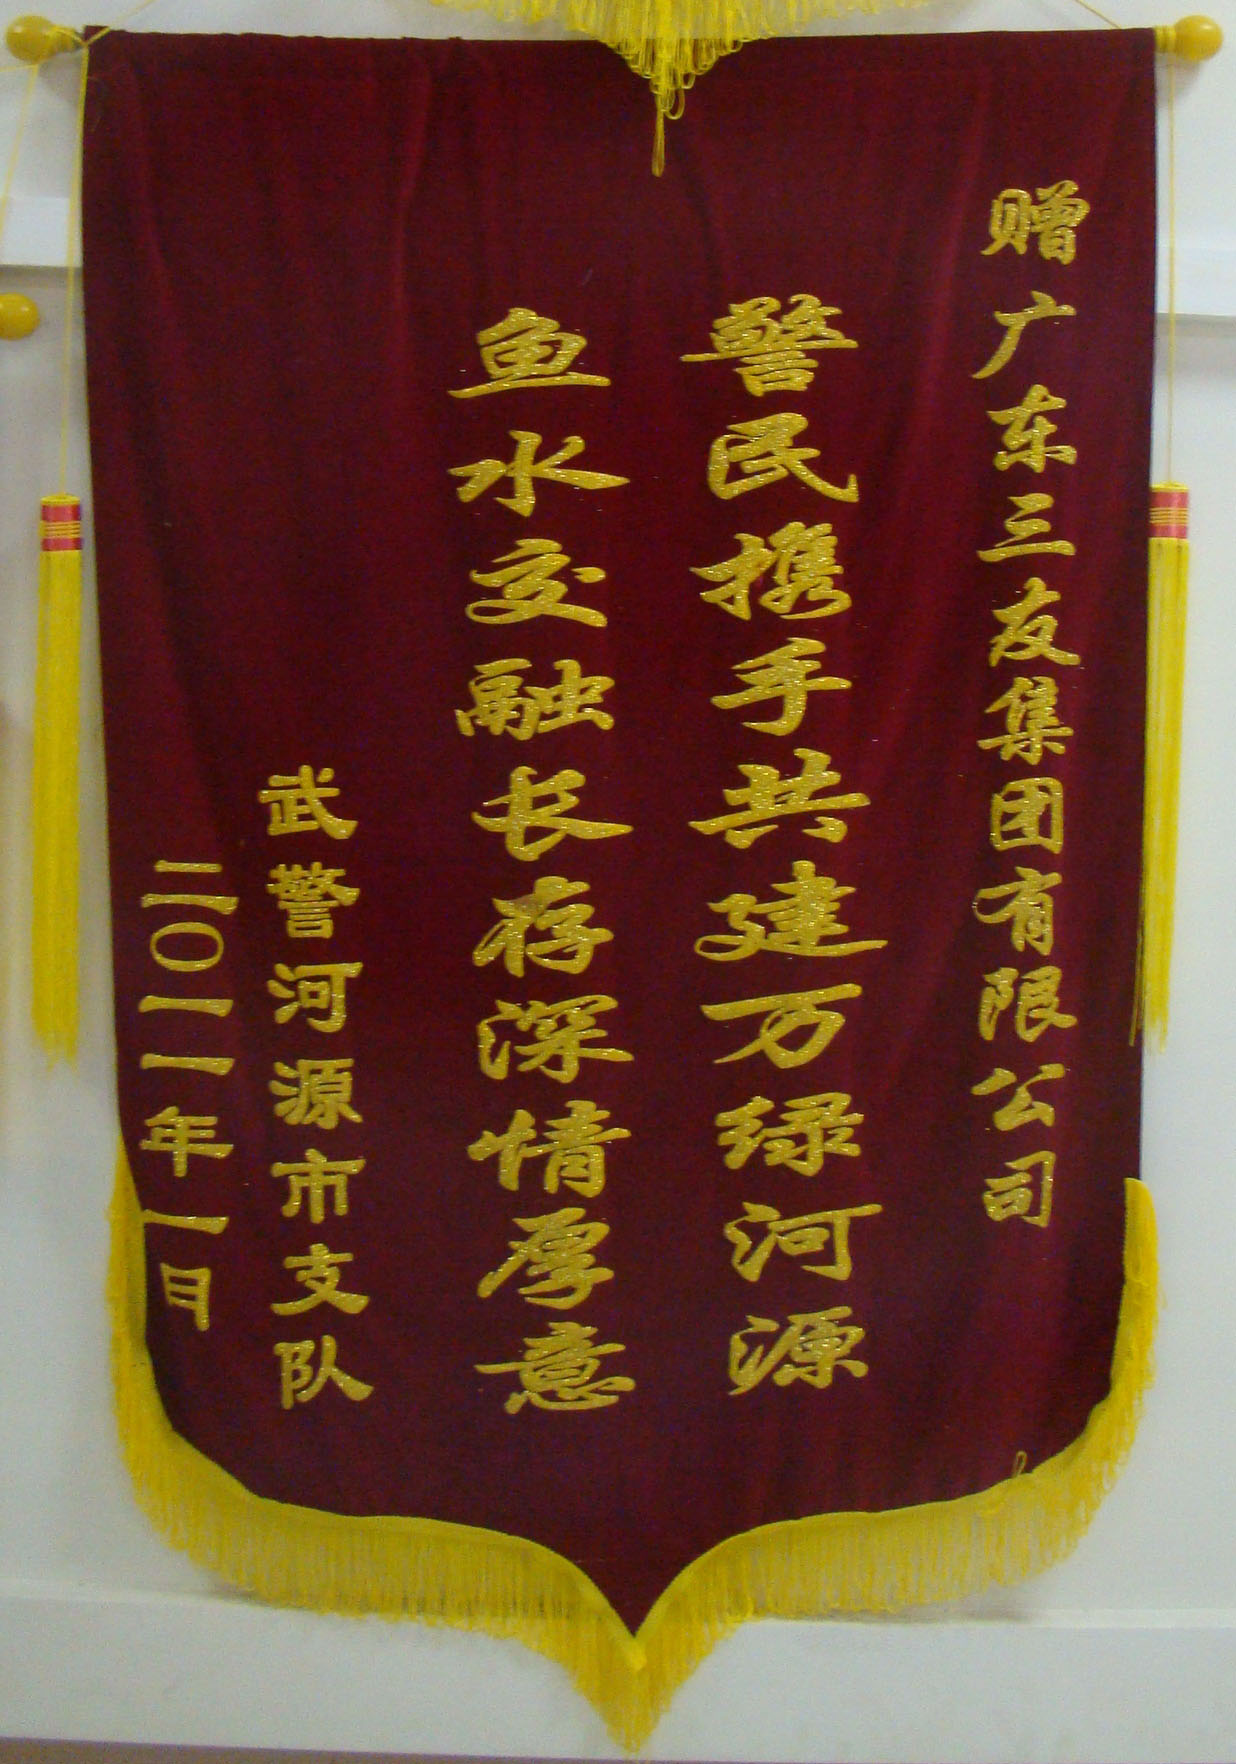 赠广东三友集团有限公司
警民携手共建万绿河源
鱼水交融长存深情厚意
武警河源市支队
二〇一一年一月